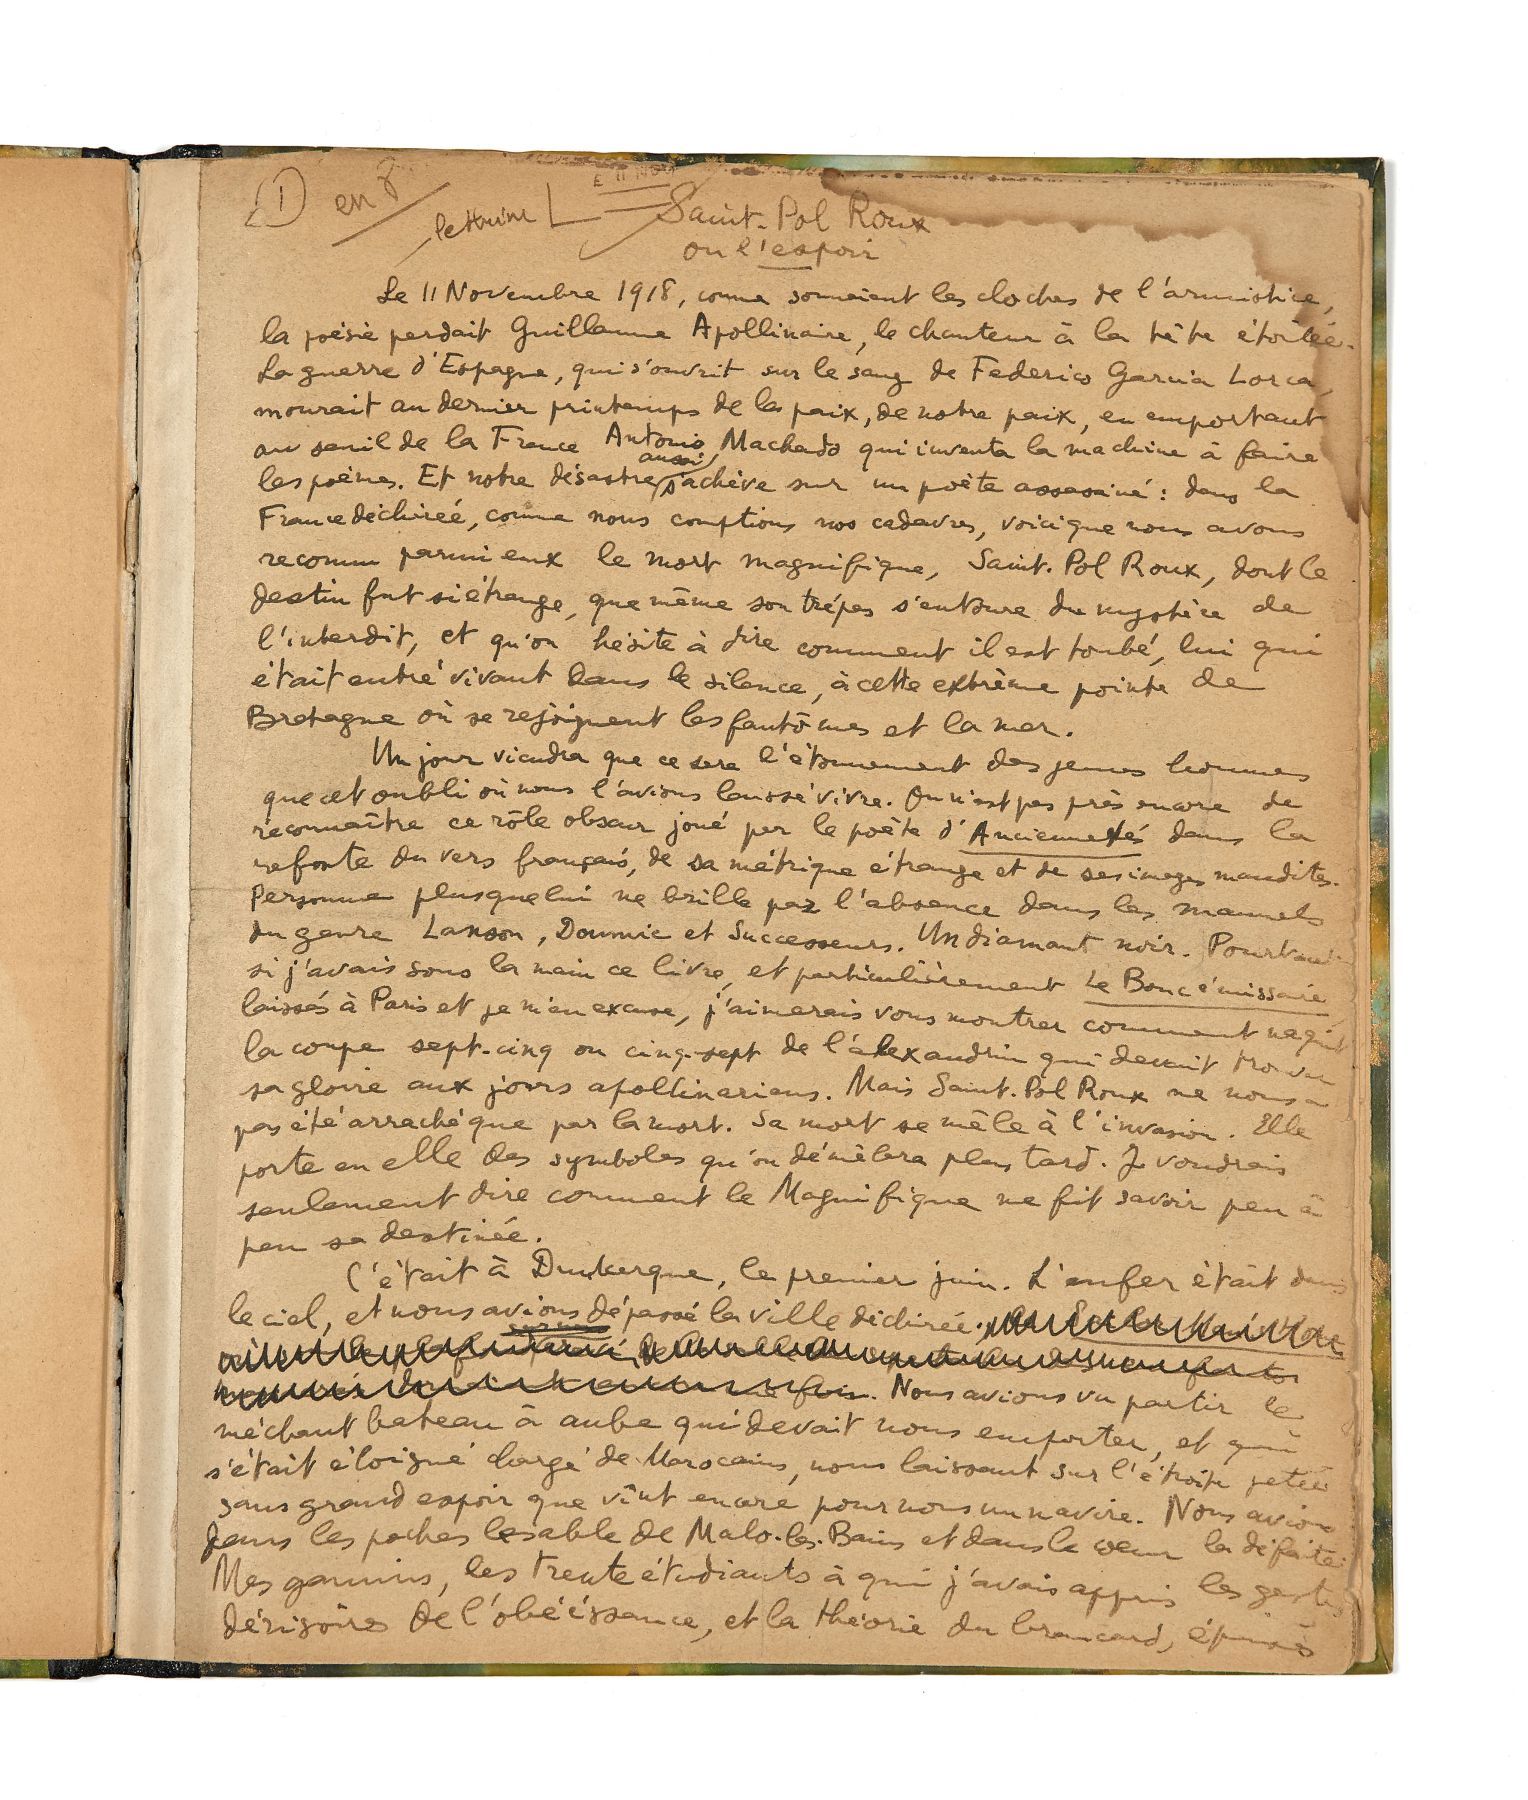 1 en 8
lettrine L E 11 Nov
Saint-Pol Roux
ou l'espoir
Le 11 Novembre 1918, comme sonnaient les cloches de l'armistice,
la poésie perdait Guillaume Apollinaire, le chanteur à la tête étoilée.
La guerre d'Espagne, qui s'ouvrit sur le sang de Federico Garcia Lorca,
mourait au dernier printemps de la paix, de notre paix, en emportant
au seuil de la France Antonio Machado qui inventa la machine à faire
les poèmes. Et notre désastre aussi s'achève sur un poète assassiné : dans la
France déchirée, comme nous comptions nos cadavres, voici que nous avons
reconnu parmi eux le mort magnifique, Saint-Pol Roux, dont le
destin fut si étrange, que même son trépas s'entoure du mystère de
l'interdit, et qu'on hésite à dire comment il est tombé, lui qui
était entré vivant dans le silence, à cette extrême pointe de
Bretagne où se rejoignent les fantômes et la mer.
Un jour viendra que ce sera l'étonnement des jeunes hommes
que cet oubli où nous l'avions laissé vivre. On n'est pas près encore de
reconnaître ce rôle obscur joué par le poète d'Anciennetés dans la
refonte du vers français, de sa métrique étrange et de ses images maudites.
Personne plus que lui ne brille par l'absence dans les manuels
du genre Lanson, Doumic et Successeurs. Un diamant noir. Pourtant
si j'avais sous la main ce livre, et particulièrement Le Bouc émissaire
laissés à Paris et je m'en excuse, j'aimerais vous montrer comment naquit
la coupe sept-cinq ou cinq-sept de l'alexandrin qui devait trouver
sa gloire aux jours apollinariens. Mais Saint-Pol Roux ne nous a
pas été arraché que par la mort. Sa mort se mêle à l'invasion. Elle
porte en elle des symboles qu'on démêlera plus tard. Je voudrais
seulement dire comment le Magnifique me fit savoir peu à
peu sa destinée.
C'était à Dunkerque, le premier juin. L'enfer était dans
le ciel, et nous avions dépassé la ville déchirée.
Nous avions vu partir le
méchant bateau à aube qui devait nous emporter, et qui
s'était éloigné chargé de Marocains, nous laissant sur l'étroite jetée
sans grand espoir que vînt encore pour nous un navire. Nous avions
dans les poches le sable de Malo-les-Bains et dans le cœur la défaite.
Mes gamins, les trente étudiants à qui j'avais appris les gestes
dérisoires de l'obéissance, et la théorie du brancard, épuisés